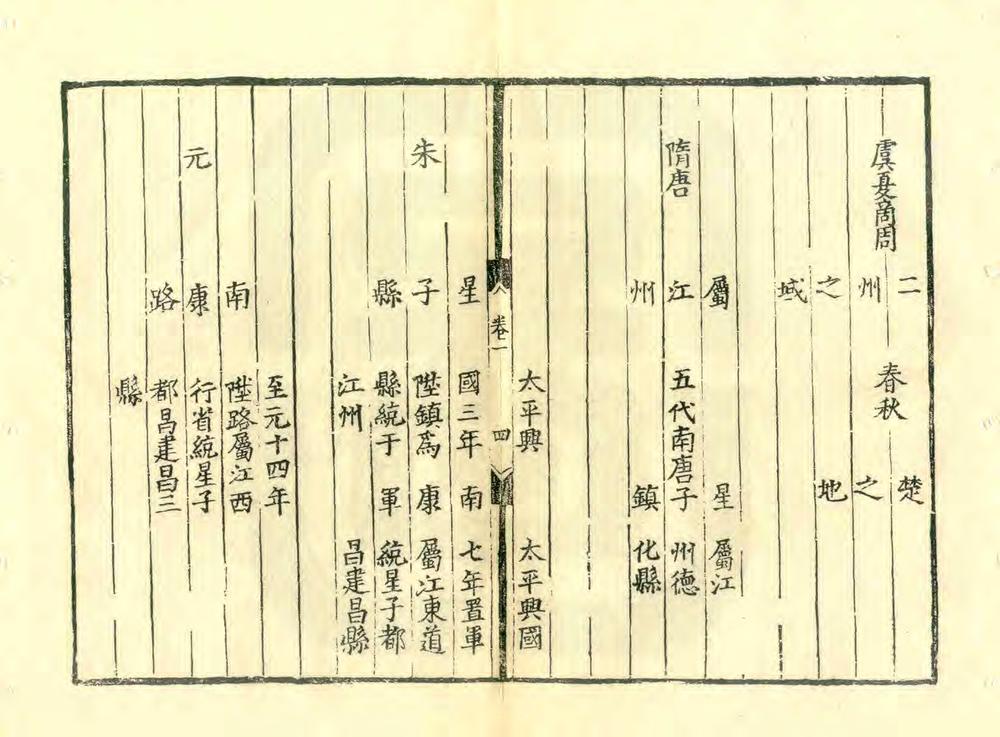 虞夏商周
二
州
之
域
春秋
楚
之
地
隋唐
屬
江
州
五代南唐
星
子
鎮
屬江
州德
化縣
卷一
四
朱
星
子
縣
太平興
國三年
陞鎮爲
縣統于
江州
南
康
軍
太平興國
七年置軍
屬江東道
統星子都
昌建昌縣
元
南
康
路
至元十四年
陞路屬江西
行省統星子
都昌建昌三
縣